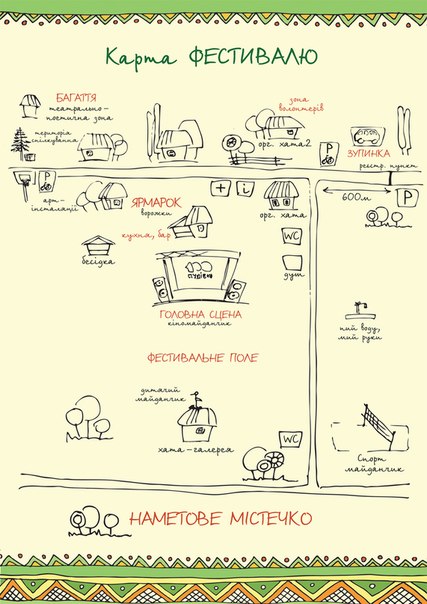 Карта ФЕСТИВАЛЮ
БАГАТТЯ
театрально-
поетична зона
територія
спілкування
зона
волонтерів
орг. хата 2
P
ЗУПИНКА
реєстр. пункт
P
арт-
інсталяції
ЯРМАРОК
ворожки
+ i
орг. хата
600м
P
кухня, бар
бесідка
WC
душ
ГОЛОВНА СЦЕНА
кіномайданчик
пий воду,
мий руки
ФЕСТИВАЛЬНЕ ПОЛЕ
дитячий
майданчик
хата-галерея
WC
Спорт
майданчик
НАМЕТОВЕ МІСТЕЧКО